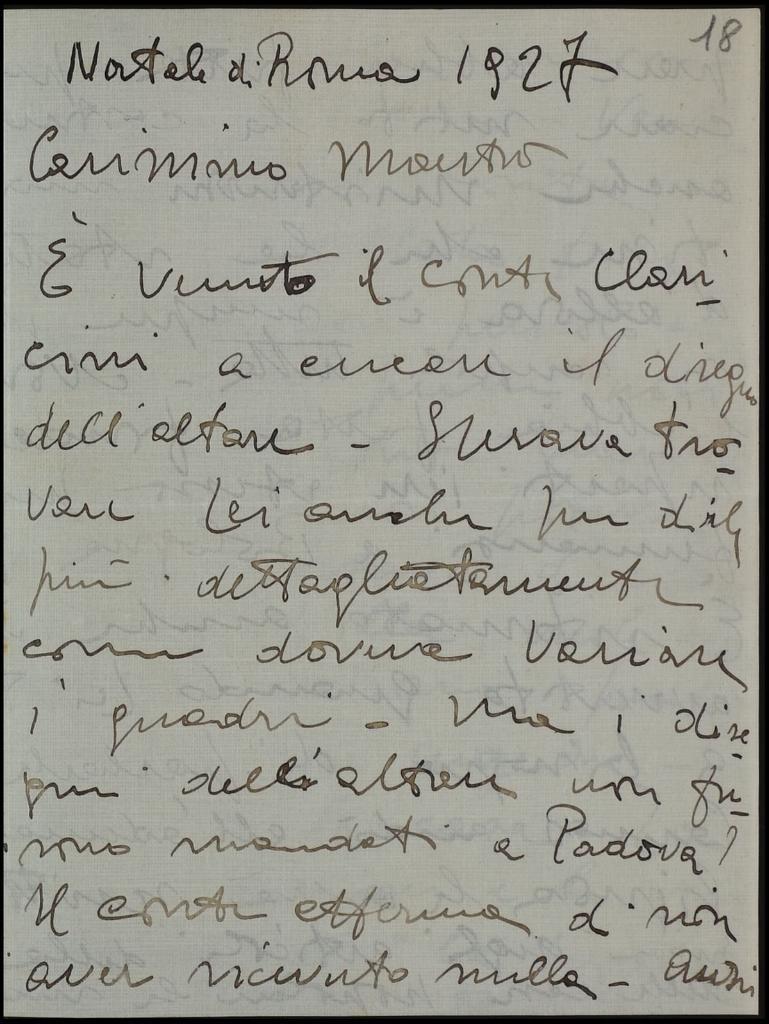 18
Natale di Roma 1927
Carissimo Maestro
È venuto il conte Clari-
cini a cercare il disegno
dell'altare - Sperava tro-
vare Lei anche per dirle
più dettagliatamente
come doveva variare
i quadri - Ma i dise-
gni dell'altare non fu-
rono mandati a Padova?
Il conte afferma di non
aver ricevuto nulla - Anzi